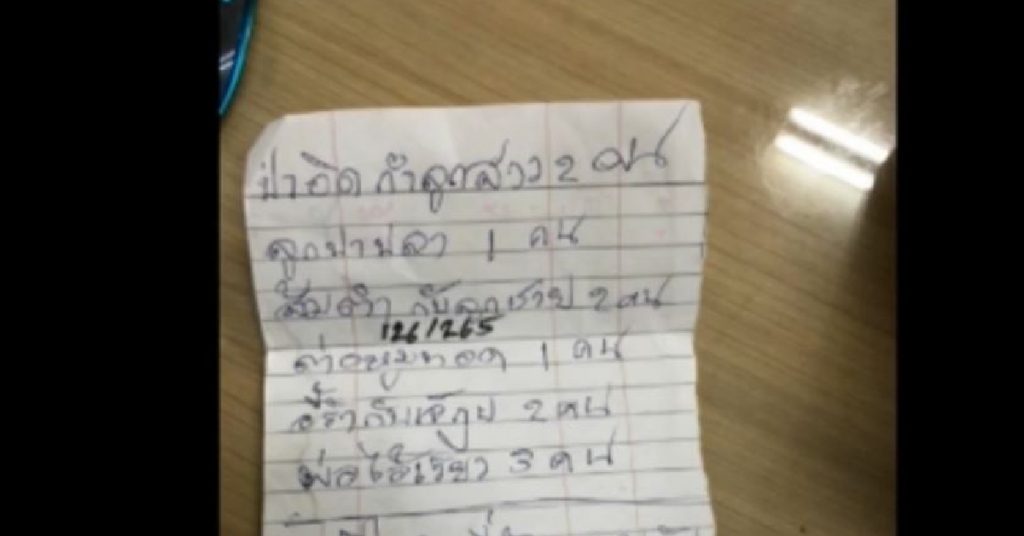 ป้าอิด กับลูกสาว 2 คน
ลูกป้าปลา 1 คน
ส้มตำ กับลูกชาย 2 คน
126/265
ต่อหมูทอด 1 คน
กับ 2 คน
พ่อไอ้เรียว 3 คน